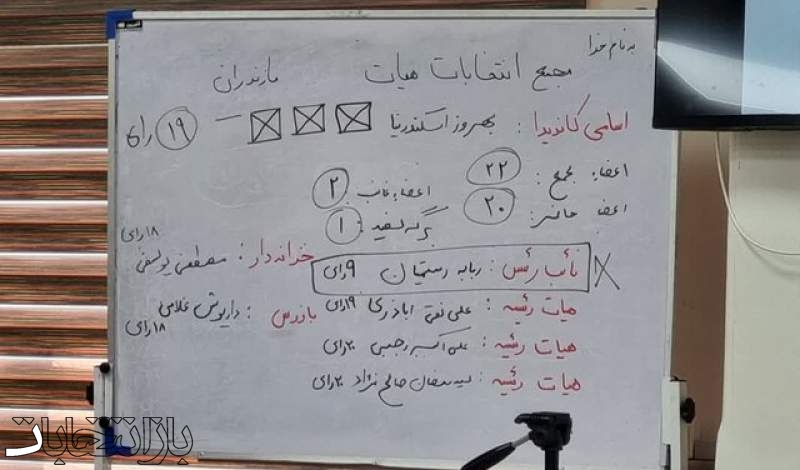 به نام خدا
مجمع انتخابات هیات مازندران
اسامی کاندیدا : بهروز اسکندرنیا ۱۹ رای
اعضاء مجمع : ۲۲
اعضاء غائب : ۲
اعضا حاضر : ۲۰
برگه سفید : ۱
نائب رئیس : ربابه رستمیان ۹ رای
خزانه دار : مصطفی یوسفی ۱۸ رای
هیات رئیسه : علی نقی اباذری ۱۹ رای
بازرس : داریوش غلامی ۱۸ رای
هیات رئیسه : علی اکبر رجبی ۲۰ رای
هیات رئیسه : صالح نژاد ۲۰ رای
بازانتخابات